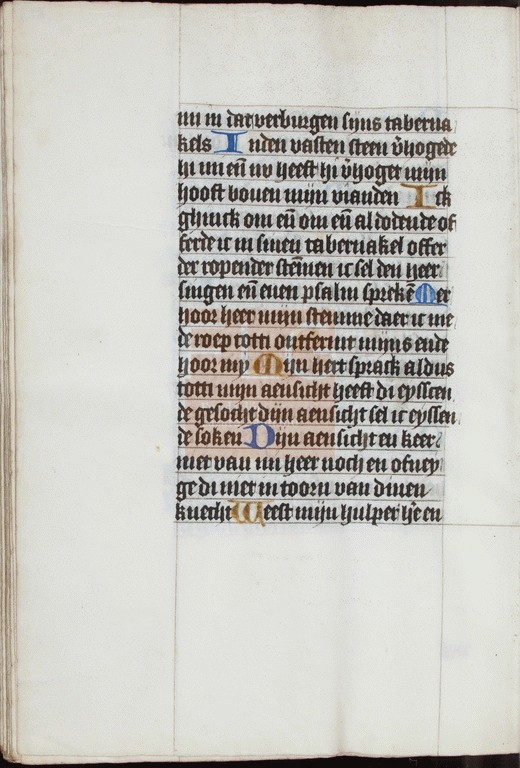 mi in dat verburgen sijns taberna
kels In den vasten steen v̄hogede
hi mi en̄ nv heeft hi v̄hoget mijn
hooft bouen mijn vianden Ick
ghinck om en̄ om en̄ al dodende of
ferde ic in sinen tabernakel offer
der ropender stem̄en ic sel den heer
singen en̄ enen psalm sprekē Mer
hoor heer mijn stemme daer ic me
de roep totti ontfermt mijns ende
hoor my Mijn hert sprack aldus
totti mijn aensicht heeft di eysscen
de gesocht dijn aensicht sel ic eyssen
de soken Dijn aensicht en keer
niet van mi heer noch en ofney
ge di niet in toorn van dinen
knecht Weest mijn hulper hēe en